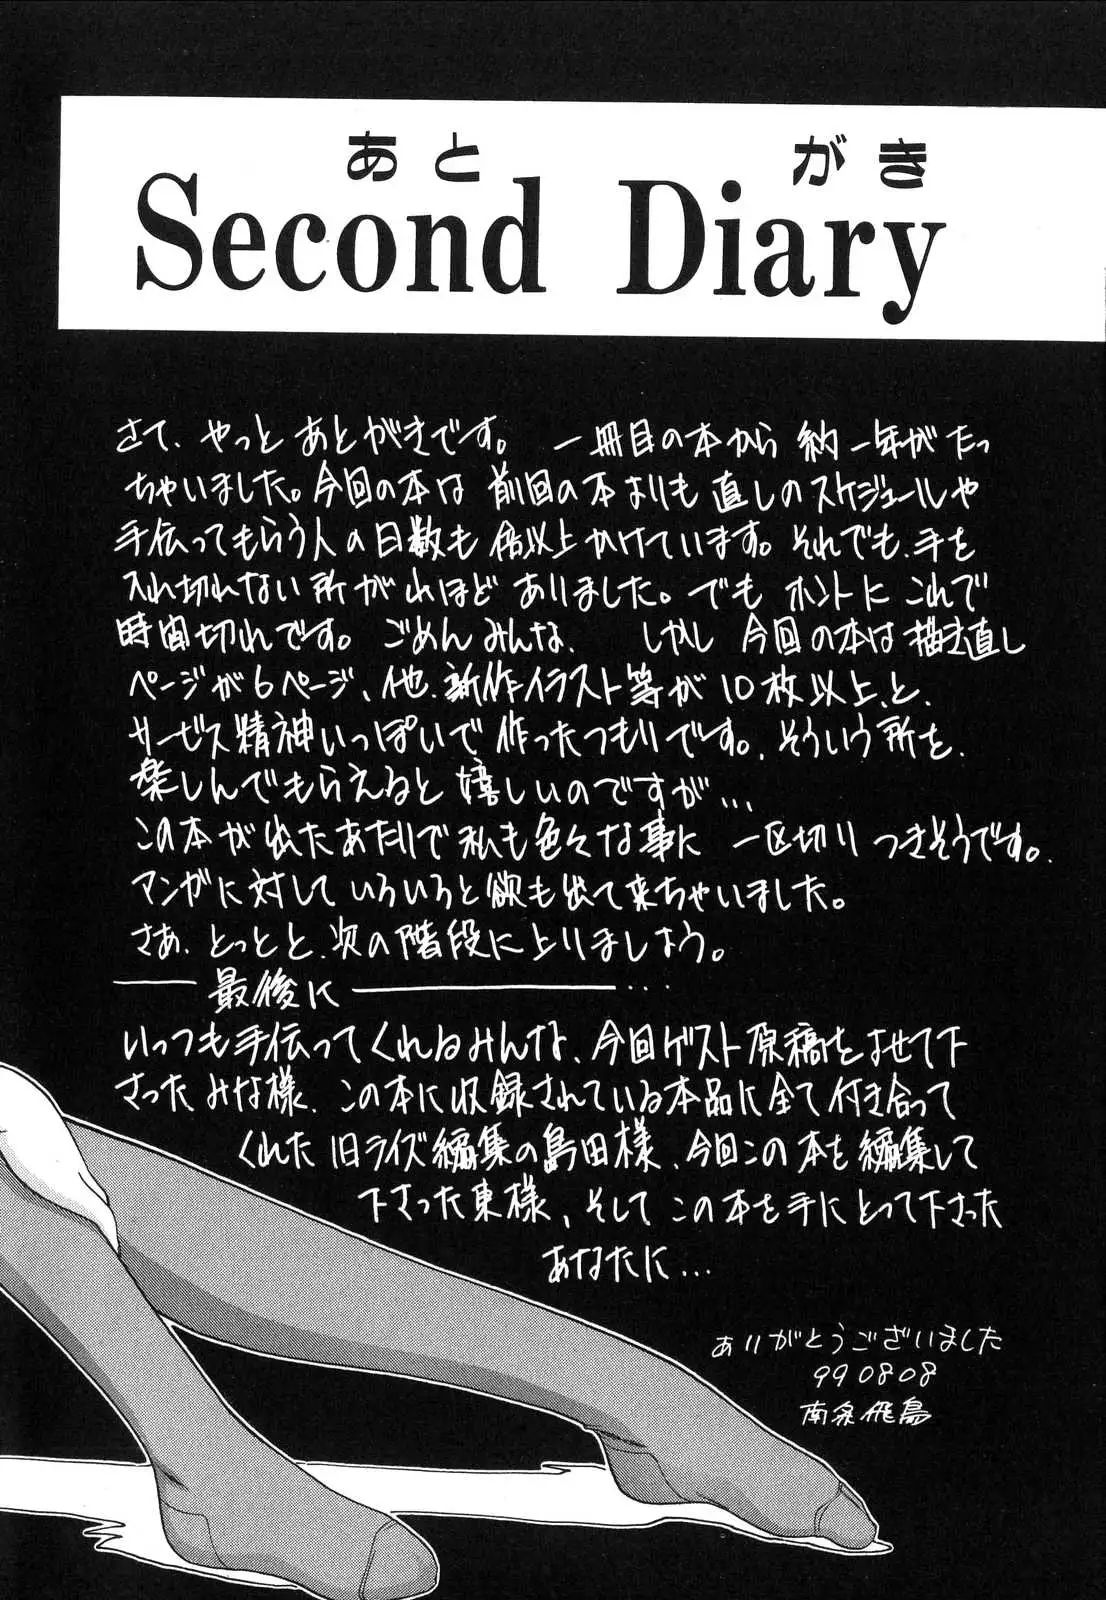 あとがき
Second Diary
さて、やっと あとがきです。 一冊目の本から 約一年がたっ
ちゃいました。今回の本は 前回の本よりも 直しのスケジュールや
手伝ってもらう人の日数も 倍以上かけています。それでも、手を
入れ切れない所がけれほど ありました。でも ホントに これで
時間切れです。 ごめんみんな、 しかし 今回の本は描き直し
ページが6ページ、他、新作イラスト等が10枚以上、と、
サービス精神いっぱいで 作ったつもりです。そういう所を、
楽しんでもらえると 嬉しいのですが…
この本が出たあたりで私も色々な事に 一区切り つきそうです。
マンガに対していろいろと欲も出て来ちゃいました。
さあ、とっとと、次の階段に上りましょう。
── 最後に ────────…
いつも手伝ってくれるみんな、今回ゲスト原稿をよせて下
さったみな様、この本に収録されている本品に全て付き合って
くれた旧ライズ編集の島田様、今回この本を編集して
下さった東様、そして この本を手にとって下さった
あなたに…
ありがとうございました
990808
南条飛鳥